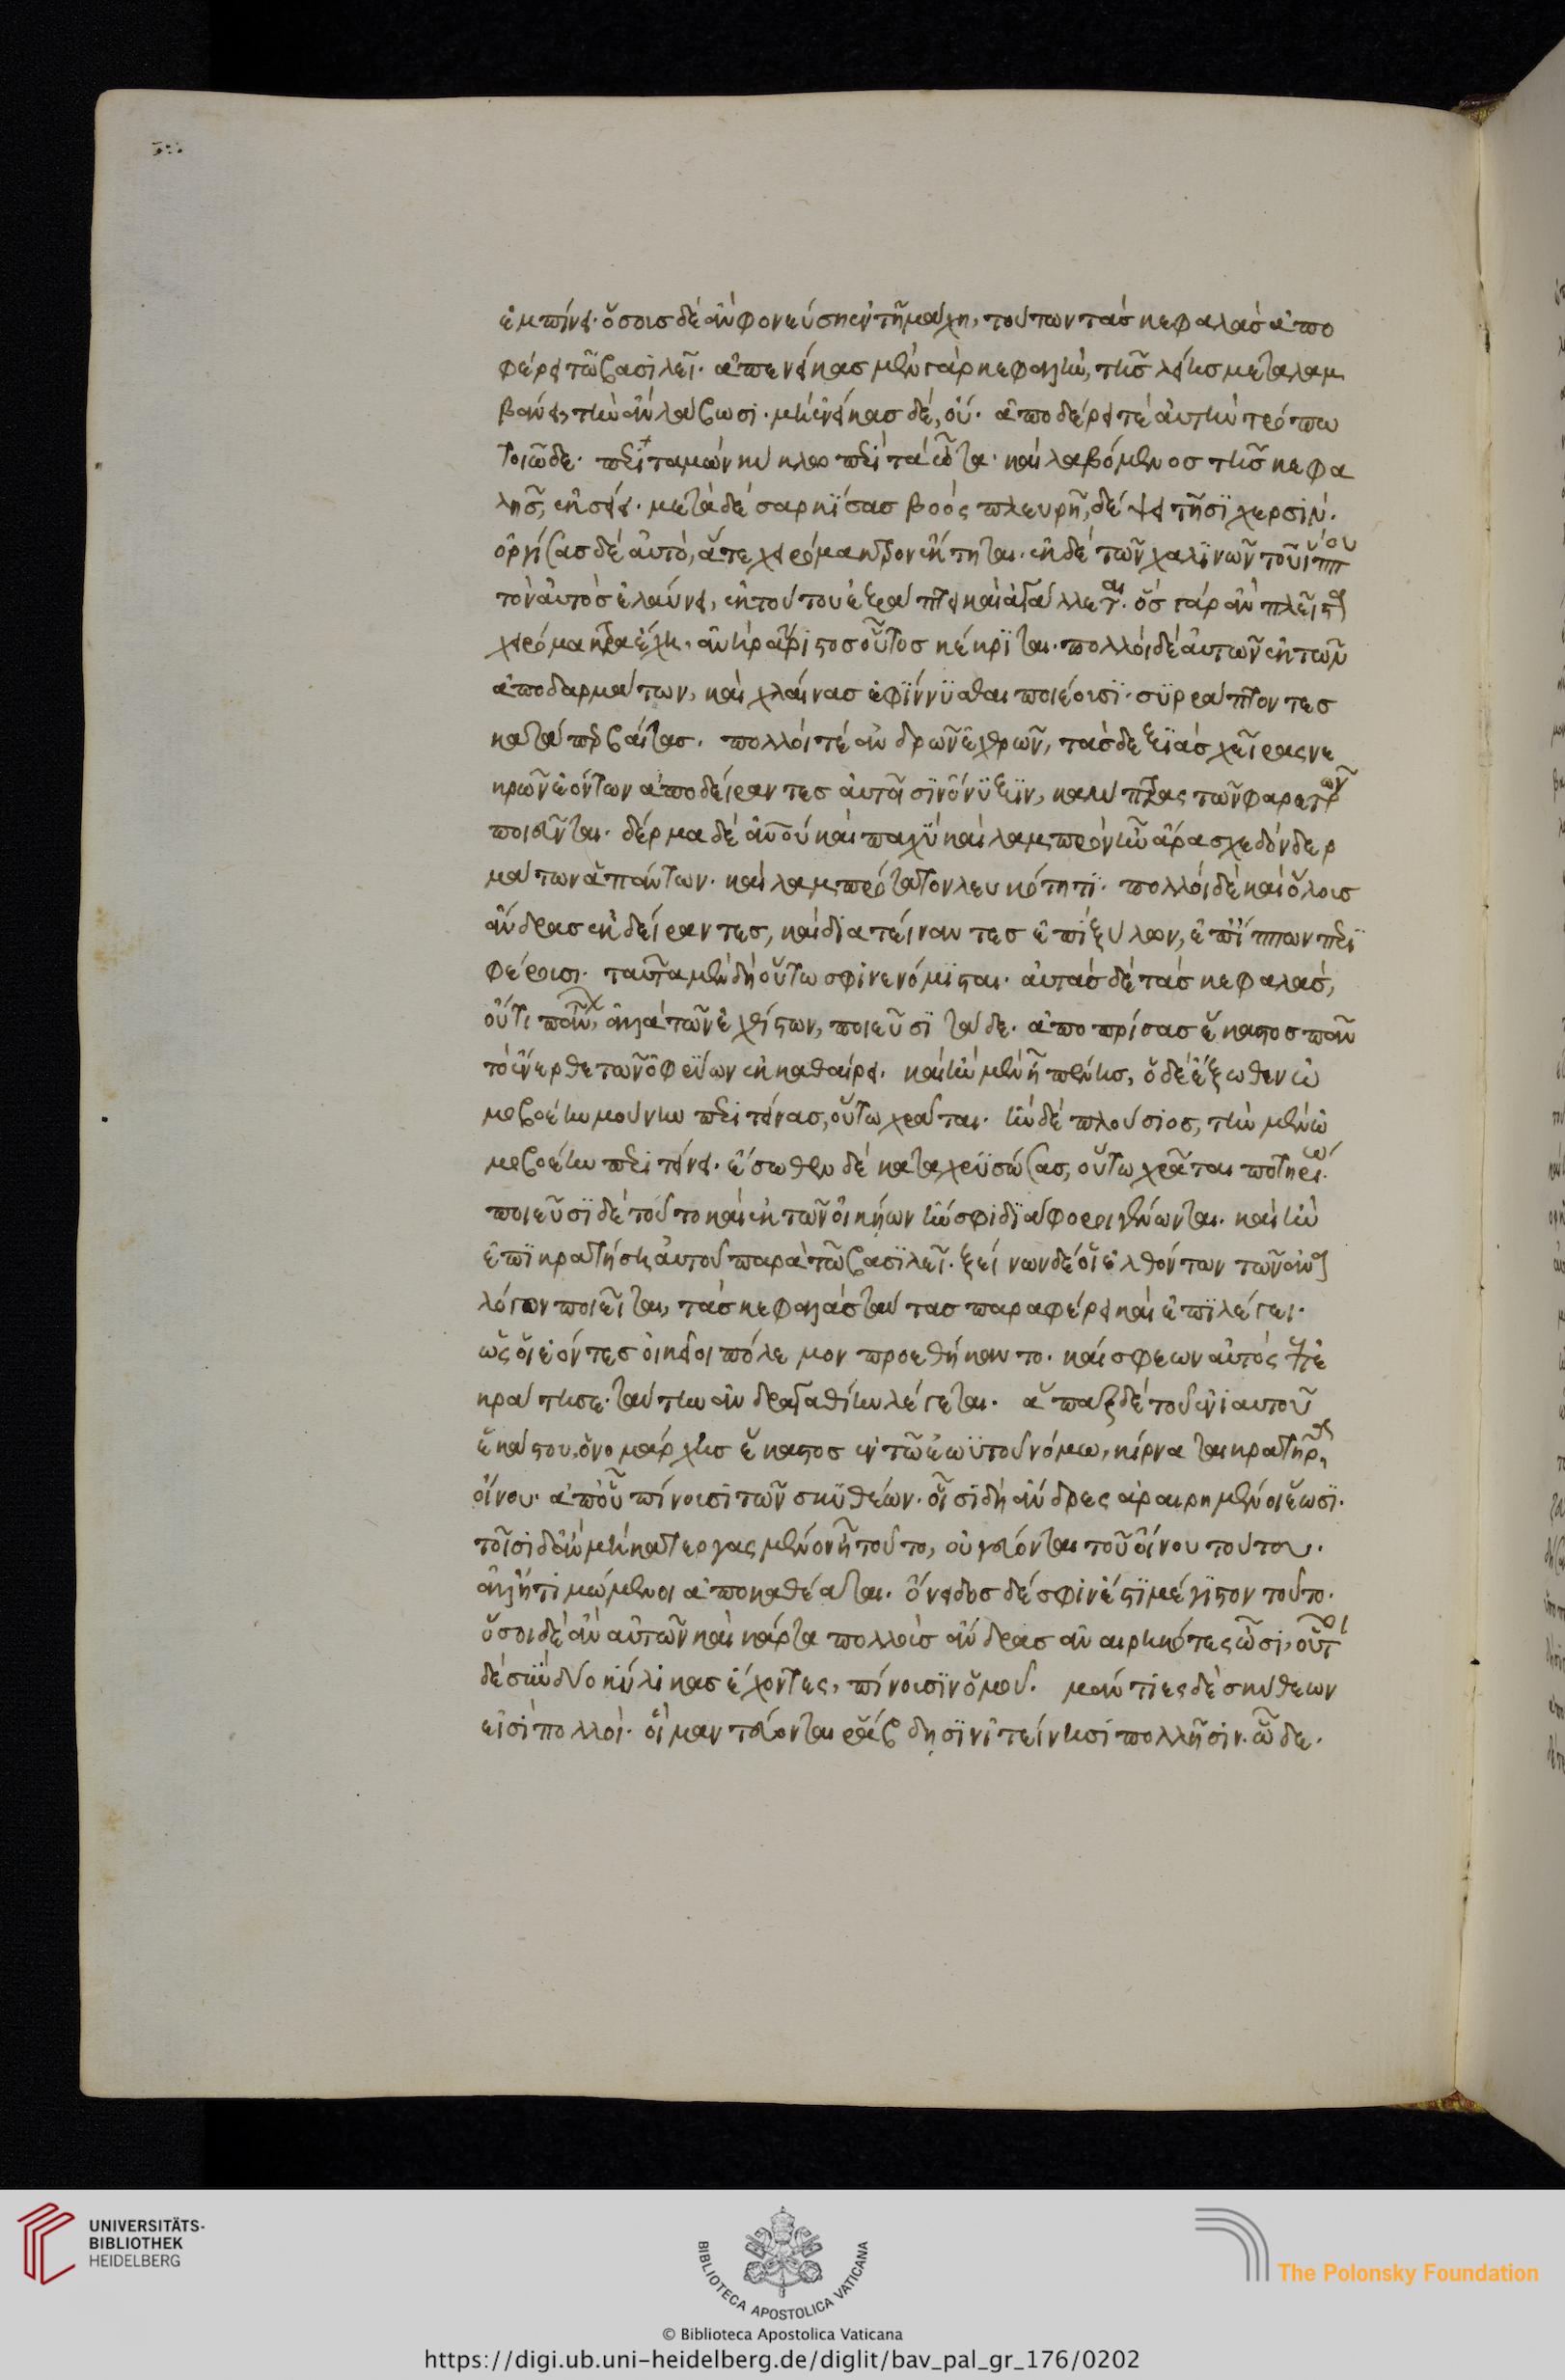 ἐμπίνει· ὅσους δὲ ἂν φονεύση ἐν τῆ μάχη, τούτων τὰς κεφαλὰς ἀπο
φέρει τῶ βασιλεῖ· ἀπενείκας μὲν γὰρ κεφαλὴν, τῆς ληίης μεταλαμ
βάνει, τὴν ἂν λάβωσι· μὴ ἐνείκας δὲ, οὔ· ἀποδέρει τὲ αὐτὴν τρόπω
τοιῶδε· περιταμὼν κύκλω περὶ τὰ ὦτα· καὶ λαβόμενος τῆς κεφα
λῆς, ἐκσείει· μετὰ δὲ σαρκίσας βοὸς πλευρῆ, δέψει τῆσι χερσίν·
ὀργίσας δὲ αὐτὸ, ἅτε χειρόμακτρον ἔκτηται· ἐκ δὲ τῶν χαλινῶν τοῦ ἵππου
τὸν αὐτὸς ἐλαύνει, ἐκ τούτου ἐξάπτει καὶ ἀγάλλεται· ὃς γὰρ ἂν πλεῖστα
χειρόμακτρα ἔχη, ἀνὴρ ἄριστος οὗτος κέκριται· πολλοὶ δὲ αὐτῶν ἐκ τῶν
ἀποδαρμάτων, καὶ χλαίνας ἐφίννυσθαι ποιέουσι· συρράπτοντες
κατάπερ βαίτας· πολλοί τὲ ἀνδρῶν ἐχθρῶν, τὰς δεξιὰς χεῖρας νε
κρῶν ἐόντων ἀποδείραντες αὐτῆσιν ὄνυξιν, καλύπτρας τῶν φαρετρῶν
ποιεῦνται· δέρμα δὲ ἀνοῦ καὶ παχὺ καὶ λαμπρὸν ἦν ἄρα σχεδὸν δερ
μάτων ἁπάντων· καὶ λαμπρότατον λευκότητι· πολλοὶ δὲ καὶ ὅλους
ἄνδρας ἐκδείραντες, καὶ διατείναντες ἐπὶ ξύλων, ἐπ' ἵππων περι
φέρουσι· ταῦτα μὲν δὴ οὕτω σφι νενόμισται· αὐτὰς δὲ τὰς κεφαλὰς,
οὔτι πάντων, ἀλλὰ τῶν ἐχθίστων, ποιεῦσι τάδε· ἀποπρίσας ἕκαστος πᾶν
τὸ ἔνερθε τῶν ὀφρύων ἐκκαθαίρει· καὶ ἢν μὲν ἦ πένης, ὁ δὲ ἔξωθεν ὠ
μοβοέην μούνην περιτείνας, οὕτω χρᾶται· ἢν δὲ πλούσιος, τὴν μὲν ὠ
μοβοέην περιτείνει· ἔσωθεν δὲ καταχρυσώσας, οὕτω χρᾶται ποτηρίω·
ποιεῦσι δὲ τοῦτο καὶ ἐκ τῶν οἰκήων ἤν σφι διάφοροι γένωνται· καὶ ἢν
ἐπικρατήση αὐτοῦ παρὰ τῶ βασιλεῖ· ξείνων δέ οἱ ἐλθόντων τῶν ἂν
λόγον ποιεῖται, τὰς κεφαλὰς ταύτας παραφέρει καὶ ἐπιλέγει·
ὥς οἱ ἐόντες οἰκεῖοι πόλεμον προεθήκαντο· καί σφεων αὐτὸς ἐπε
κράτησε· ταύτην ἀνδραγαθίην λέγεται· ἅπαξ δὲ τοῦ ἐνιαυτοῦ
ἑκάστου, ὁ νομάρχης ἕκαστος ἐν τῶ ἑωυτοῦ νόμω, κίρναται κρατῆρα
οἴνου· ἀπ' οὗ πίνουσι τῶν σκυθέων· οἷσι δὴ ἄνδρες ἀραιρημένοι ἔωσι·
τοῖσι δ' ἂν μὴ κατεργασμένον ἦ τοῦτο, οὐ γεύονται τοῦ οἴνου τούτου·
ἀλλ' ἠτιμωμένοι ἀποκαθέαται· ὄνειδος δέ σφιν ἐστὶ μέγιστον τοῦτο·
ὅσοι δὲ ἂν αὐτῶν καὶ κάρτα πολλοὺς ἄνδρας ἀναιρηκότες ὦσι, οὗτοι
δὲ σὺν δύο κύλικας ἔχοντες, πίνουσιν ὁμοῦ· μάντιες δὲ σκυθέων
εἰσὶ πολλοὶ· οἳ μαντεύονται ῥάβδησιν ἰτείνησι πολλῆσιν· ὧδε·
UNIVERSITÄTS-
BIBLIOTHEK
HEIDELBERG
BIBLIOTECA APOSTOLICA VATICANA
The Polonsky Foundation
© Biblioteca Apostolica Vaticana
https://digi.ub.uni-heidelberg.de/diglit/bav_pal_gr_176/0202